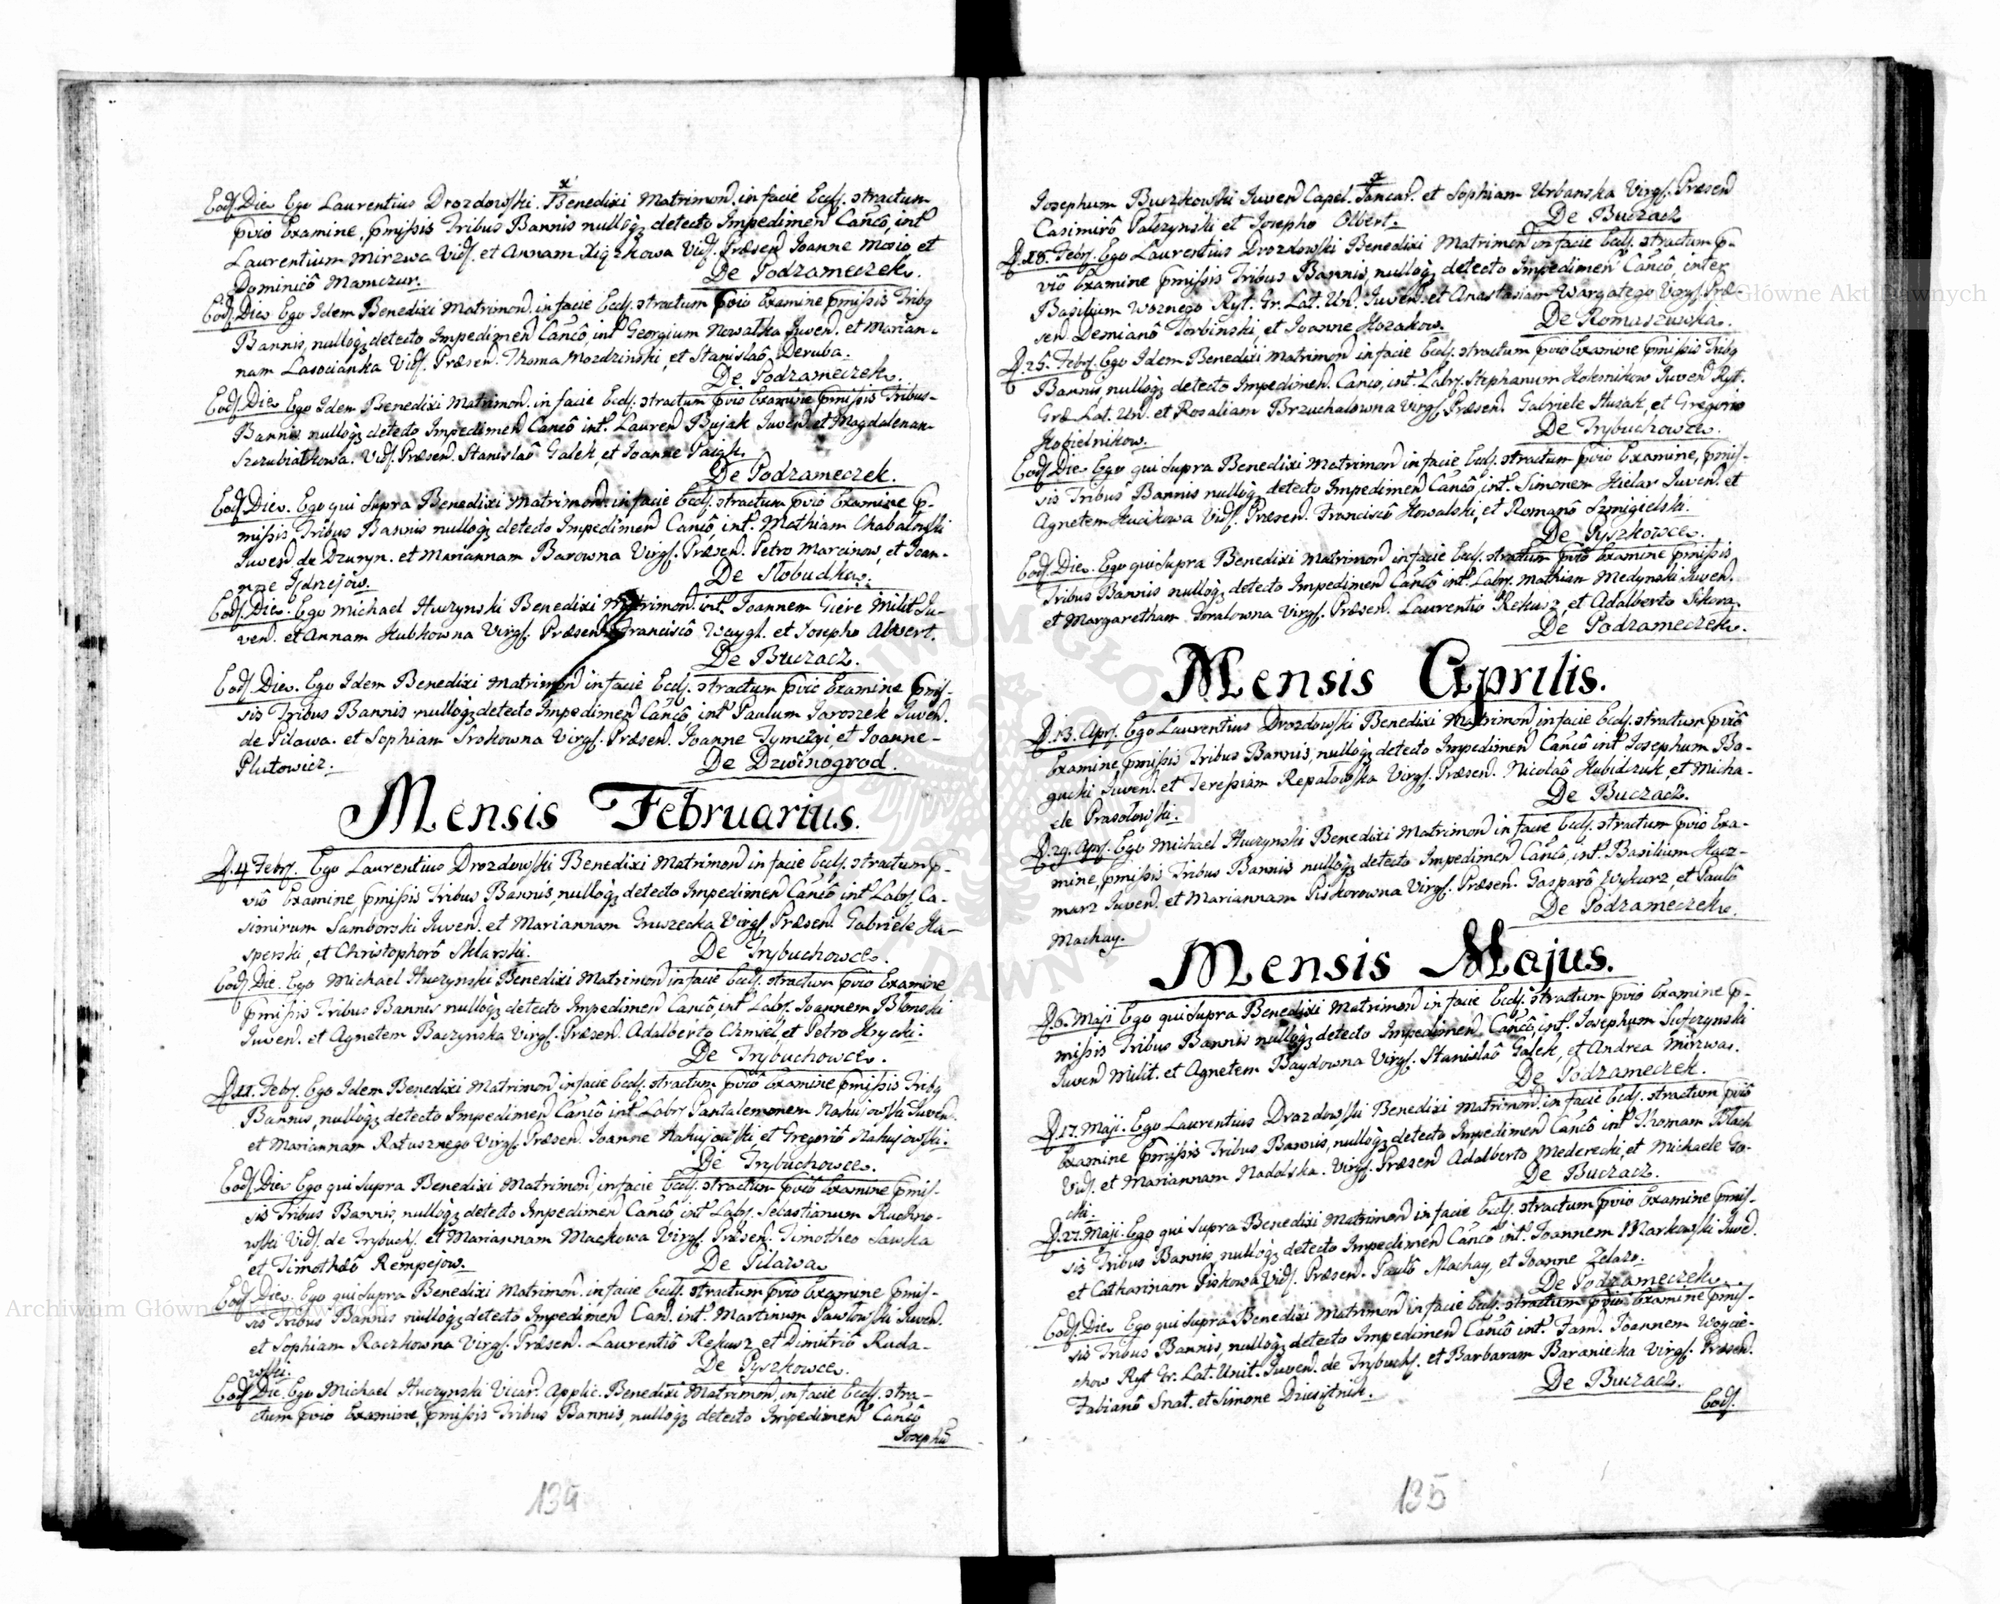 Eod. Die. Ego Laurentius Drozdowski. Benedixi Matrimon. in facie Eccl. stractum
pvio Examine, pmissis Tribus Bannis nulloqz detecto Impedimen Canco, int.
Laurentium Mirzwa Vid. et Annam Xiązkowa Vid. Præsen Joanne Mosio et
Dominicô Mamczur. De Podzameczek.
Eod. Die Ego Idem Benedixi Matrimon. in facie Eccl. stractum pvio Examine pmissis Tribq
Bannis, nulloqz detecto Impedimen Canco, int. Georgium Nowalka Juven. et Marian-
nam Lasocianka Vid. Præsen. Thoma Mozdzinski, et Stanislaô Deruba.
De Podzameczek.
Eod. Die Ego Idem Benedixi Matrimon. in facie Eccl. stractum pvio Examine pmissis Tribus
Bannis nulloqz detecto Impedimen Canco int. Lauren Bujak Juven. et Magdalenam
Szczubiałkowa. Vid. Præsen. Stanislaô Galek, et Joanne Paigk.
De Podzameczek.
Eod. Die. Ego qui Supra Benedixi Matrimon in facie Eccl. stractum pvio Examine p-
missis, Tribus Bannis nulloqz detecto Impedimen Canco, int. Mathiam Chabalowski
Juven. de Dzuryn. et Mariannam Barowna Virg. Præsen. Petro Marcinow, et Joan-
nne Jdrejów. De Słobudka.
Eod. Die. Ego Michael Huczynski Benedixi Matrimon. int. Joannem Giere Milit Ju-
ven. et Annam Hubkowna Virg. Præsen. Franciscô Waygl. et Josepho Albert.
De Buczacz.
Eod. Die. Ego Idem Benedixi Matrimon in facie Eccl. stractum pvio Examine pmis-
sis Tribus Bannis nulloqz detecto Impedimen Canco int. Paulum Jaroszek Juven.
de Pilawa. et Sophiam Srokowna Virg. Præsen. Joanne Tymczyi, et Joanne
Plutowicz. De Dzwinogrod.
Mensis Februarius.
D. 4 Febr. Ego Laurentius Drozdowski Benedixi Matrimon in facie Eccl. stractum p-
viô Examine, pmissis Tribus Bannis, nulloqz detecto Impedimen Canco, int. Labr. Ca-
simirum Samborski Juven. et Mariannam Gruszecka Virg. Præsen. Gabriele Ka-
sperski, et Christophorô Sklarski. De Trybuchowce.
Eod. Die. Ego Michael Huczynski Benedixi Matrimon in facie Eccl. stractum pvio Examine
pmissis Tribus Bannis nulloqz detecto Impedimen Canco, int. Labr. Joannem Blonski
Juven. et Agnetem Baczynska Virg. Præsen. Adalberto Chmiel, et Petro Hrycki.
De Trybuchowce.
D. 11. Febr. Ego Idem Benedixi Matrimon in facie Eccl. stractum pviô Examine pmissis Tribq
Bannis, nulloqz detecto Impedimen Canco int. Labr. Pantalemonem Nahujowski Juven.
et Mariannam Ratusznego Virg. Præsen. Joanne Nahujowski et Gregoriô Nahujowski.
De Trybuchowce.
Eod. Die Ego qui Supra Benedixi Matrimon, in facie Eccl. stractum pviô Examine pmis-
sis Tribus Bannis, nulloqz detecto Impedimen Canco int. Labr. Sebastianum Ruchno-
wski Vid. de Trybuch. et Mariannam Mackowa Virg. Præsen. Timotheo Sawka
et Timotheô Rempejow. De Pilawa
Eod. Die. Ego qui Supra Benedixi Matrimon. in facie Eccl. stractum pvio Examine pmis-
sis Tribus Bannis nulloqz detecto Impedimen Can. int. Martinum Pawłowski Juven.
et Sophiam Raczkowna Virg. Præsen. Laurentiô Rekusz, et Dimitriô Ruda-
wski. De Pyszkowce.
Eod. Die. Ego Michael Huczynski Vicar. Applic. Benedixi Matrimon, in facie Eccl. stra-
ctum pvio Examine, pmissis Tribus Bannis, nulloqz detecto Impedimen Canco
Josephû
134
Josephum Buczkowski Juven Capel. Jancar. et Sophiam Urbanska Virg. Præsen
Casimirô Palczynski et Josepho Olbert. De Buczacz
D. 18. Febr. Ego Laurentius Drozdowski Benedixi Matrimon in facie Eccl. stractum p-
viô Examine pmissis Tribus Bannis, nulloqz detecto Impedimen Canco, inter
Basilium Woznego Ryt. Gr. Lat. Un. Juven. et Anastasiam Wargatego Virg. Præ-
sen Demianô Torbinski, et Joanne Kozakow. De Romaszuwka.
D. 25. Febr. Ego Idem Benedixi Matrimon in facie Eccl. stractum pvio Examine pmissis Tribq
Bannis, nulloqz detecto Impedimen. Canco, int. Labr. Stephanum Kolesnikow Juven Ryt.
Græ. Lat. Un. et Rosaliam Brzuchalowna Virg. Præsen. Gabriele Husak, et Gregorio
Kobielnikow. De Trybuchowce.
Eod. Die. Ego qui Supra Benedixi Matrimon in facie Eccl. stractum pviô Examine, pmis-
sis Tribus Bannis nulloqz detecto Impedimen Canco, int. Simonem Kielar Juven. et
Agnetem Kucikowa Vid. Præsen. Franciscô Kowalski, et Romanô Szmigielski.
De Pyszkowce.
Eod. Die. Ego qui Supra Benedixi Matrimon in facie Eccl. stractum pviô Examine pmissis
Tribus Bannis nulloqz detecto Impedimen Canco int. Labr. Mathiam Medynski Juven.
et Margaretham Goralowna Virg. Præsen. Laurentio Rekusz, et Adalberto Sikora.
De Podzameczek.
Mensis Aprilis.
D. 13. Apr. Ego Laurentius Drozdowski Benedixi Matrimon in facie Eccl. stractum pviô
Examine pmissis Tribus Bannis, nulloqz detecto Impedimen Canco int. Josephum Bo-
gucki Juven. et Teressiam Repałowska Virg. Præsen. Nicolaô Hubidzuk et Micha-
ele Prasołowski. De Buczacz.
D. 29. Apr. Ego Michael Huczynski Benedixi Matrimon in facie Eccl. stractum pvio Exa-
mine, pmissis Tribus Bannis nulloqz detecto Impedimen Canco, int. Basilium Kacz-
marz Juven. et Mariannam Piskorowna Virg. Præsen. Gasparô Wykurz, et Paulô
Machay. De Podzameczek.
Mensis Majus.
D. 6. Maji Ego qui Supra Benedixi Matrimon in facie Eccl. stractum pvio Examine p-
missis Tribus Bannis nulloqz detecto Impedimen. Canco, int. Josephum Sufczynski
Juven Milit. et Agnetem Baydowna Virg. Stanislaô Galek, et Andrea Mirzwa.
De Podzameczek.
D. 17. Maji. Ego Laurentius Drozdowski Benedixi Matrimon. in facie Eccl. stractum pviô
Examine pmissis Tribus Bannis, nulloqz detecto Impedimen Canco int. Thomam Blach
Vid. et Mariannam Nadolska. Virg. Præsen Adalberto Mederecki, et Michaele Go-
cki. De Buczacz.
D. 27. Maji. Ego qui Supra Benedixi Matrimon in facie Eccl. stractum pvio Examine pmis-
sis Tribus Bannis, nulloqz detecto Impedimen Canco int. Joannem Markowski Juve.
et Catharinam Piskowa Vid. Præsen. Paulô Machay, et Joanne Zelazo.
De Podzameczek.
Eod. Die. Ego qui Supra Benedixi Matrimon, in facie Eccl. stractum pviô Examine pmis-
sis Tribus Bannis, nulloqz detecto Impedimen Canco int. Fam. Joannem Woycie-
chow Ryt Gr. Lat. Unit. Juven. de Trybuch. et Barbaram Baraniecka Virg. Præsen.
Fabianô Snat. et Simone Dziesiętnik. De Buczacz.
Eod.
135
Archiwum Główne Akt Dawnych
Archiwum Główne Akt Dawnych
ARCHIWUM GŁÓWNE AKT DAWNYCH